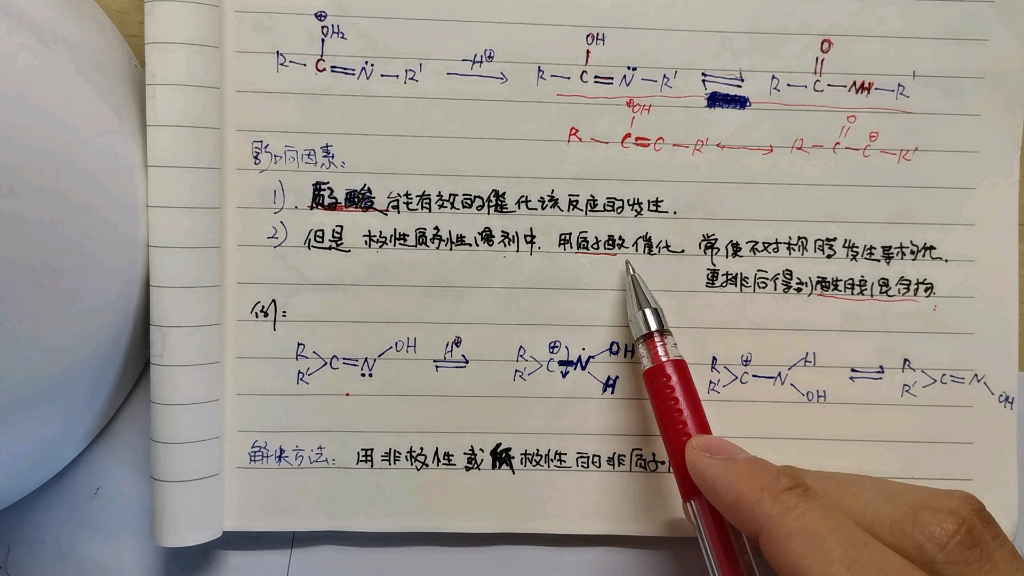 ⊕OH₂ OH O
R—C=N̈—R' —H⊕→ R—C=N̈—R' ⇌ R—C—NH—R'
⊕OH O
R—C=C—R' ↔ R—C—C⊕—R'
影响因素:
1). 质子酸能有效的催化该反应的发生.
2) 但是 极性质子性溶剂中. 用质子酸催化 常使不对称肟发生异构化.
重排后得到酰胺混合物.
例:
R R' >C=N̈ OH ⇌ H⊕ R R' >C⊕ N OH H R R' >C⊕—N H OH ⇌ R R' >C=N OH
解决方法: 用非极性或低极性的非质子